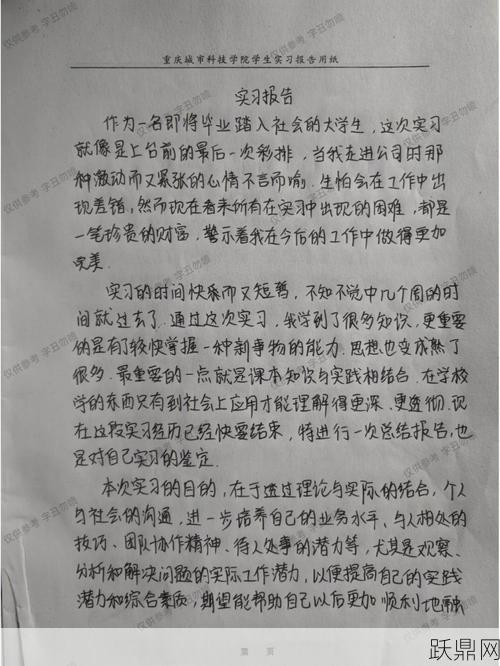 重庆城市科技学院学生实习报告用纸
实习报告
作为一名即将毕业踏入社会的大学生，这次实习
就像是上台前的最后一次彩排，当我走进公司时那
种激动而又紧张的心情不言而喻．生怕会在工作中出
现差错，然而现在看来所有在实习中出现的困难，都是
一笔珍贵的财富，警示着我在今后的工作中做得更加
完美．
实习的时间快乐而又短暂，不知不觉中几个周的时
间就过去了．通过这次实习，我学到了很多知识，更重要
的是有了较快掌握一种新事物的能力．思想也变成熟了
很多．最重要的一点就是课本知识与实践相结合．在学校
学的东西只有到社会上应用才能理解得更深、更透彻．现
在这段实习经历已经快要结束，特进行一次总结报告，也
是对自己实习的鉴定．
本次实习的目的，在于透过理论与实际的结合，个人
与社会的沟通，进一步培养自己的业务水平、与人相处的
技巧、团队协作精神、待人处事的潜力等，尤其是观察、
分析和解决问题的实际工作潜力，以便提高自己的实践
潜力和综合素质，期望能帮助自己以后更加顺利地融
第 页
跃鼎网
仅供参考 字丑勿喷